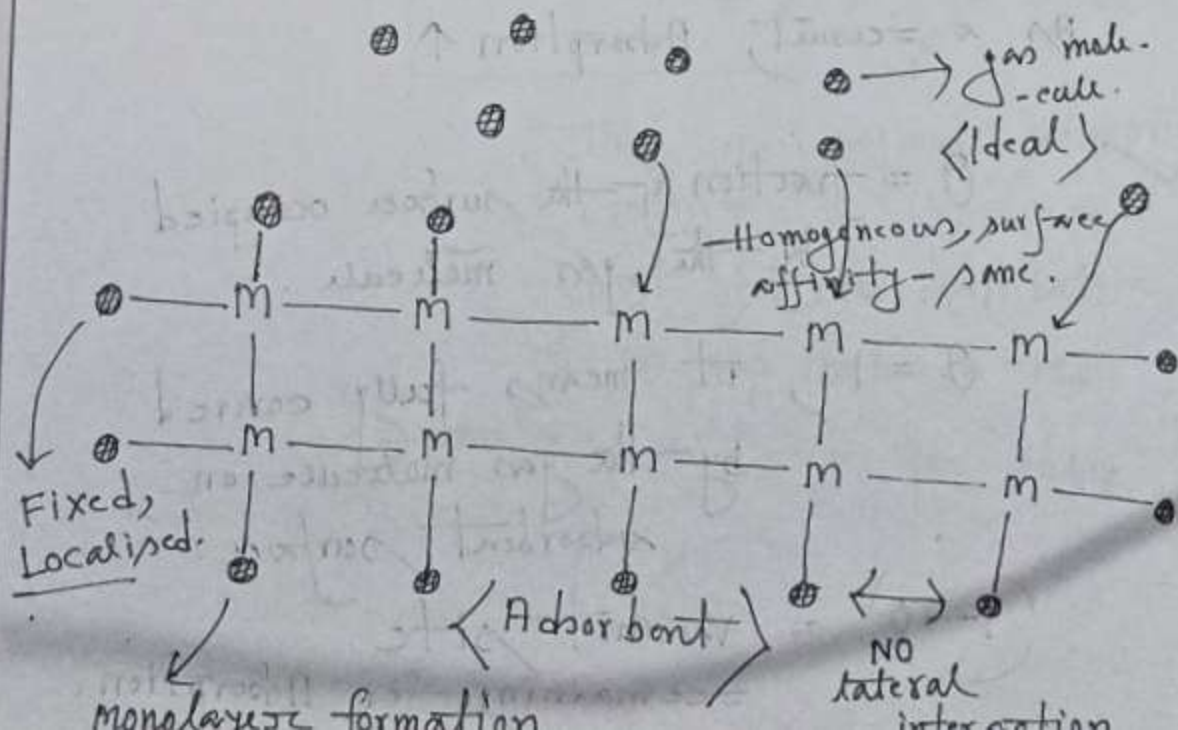 gas mole-
-cule.
<Ideal>
Homogeneous, surface
affinity - same.
m m m m m
m m m m m
Fixed,
Localised.
<Adsorbent>
NO
lateral
interaction
monolayer formation